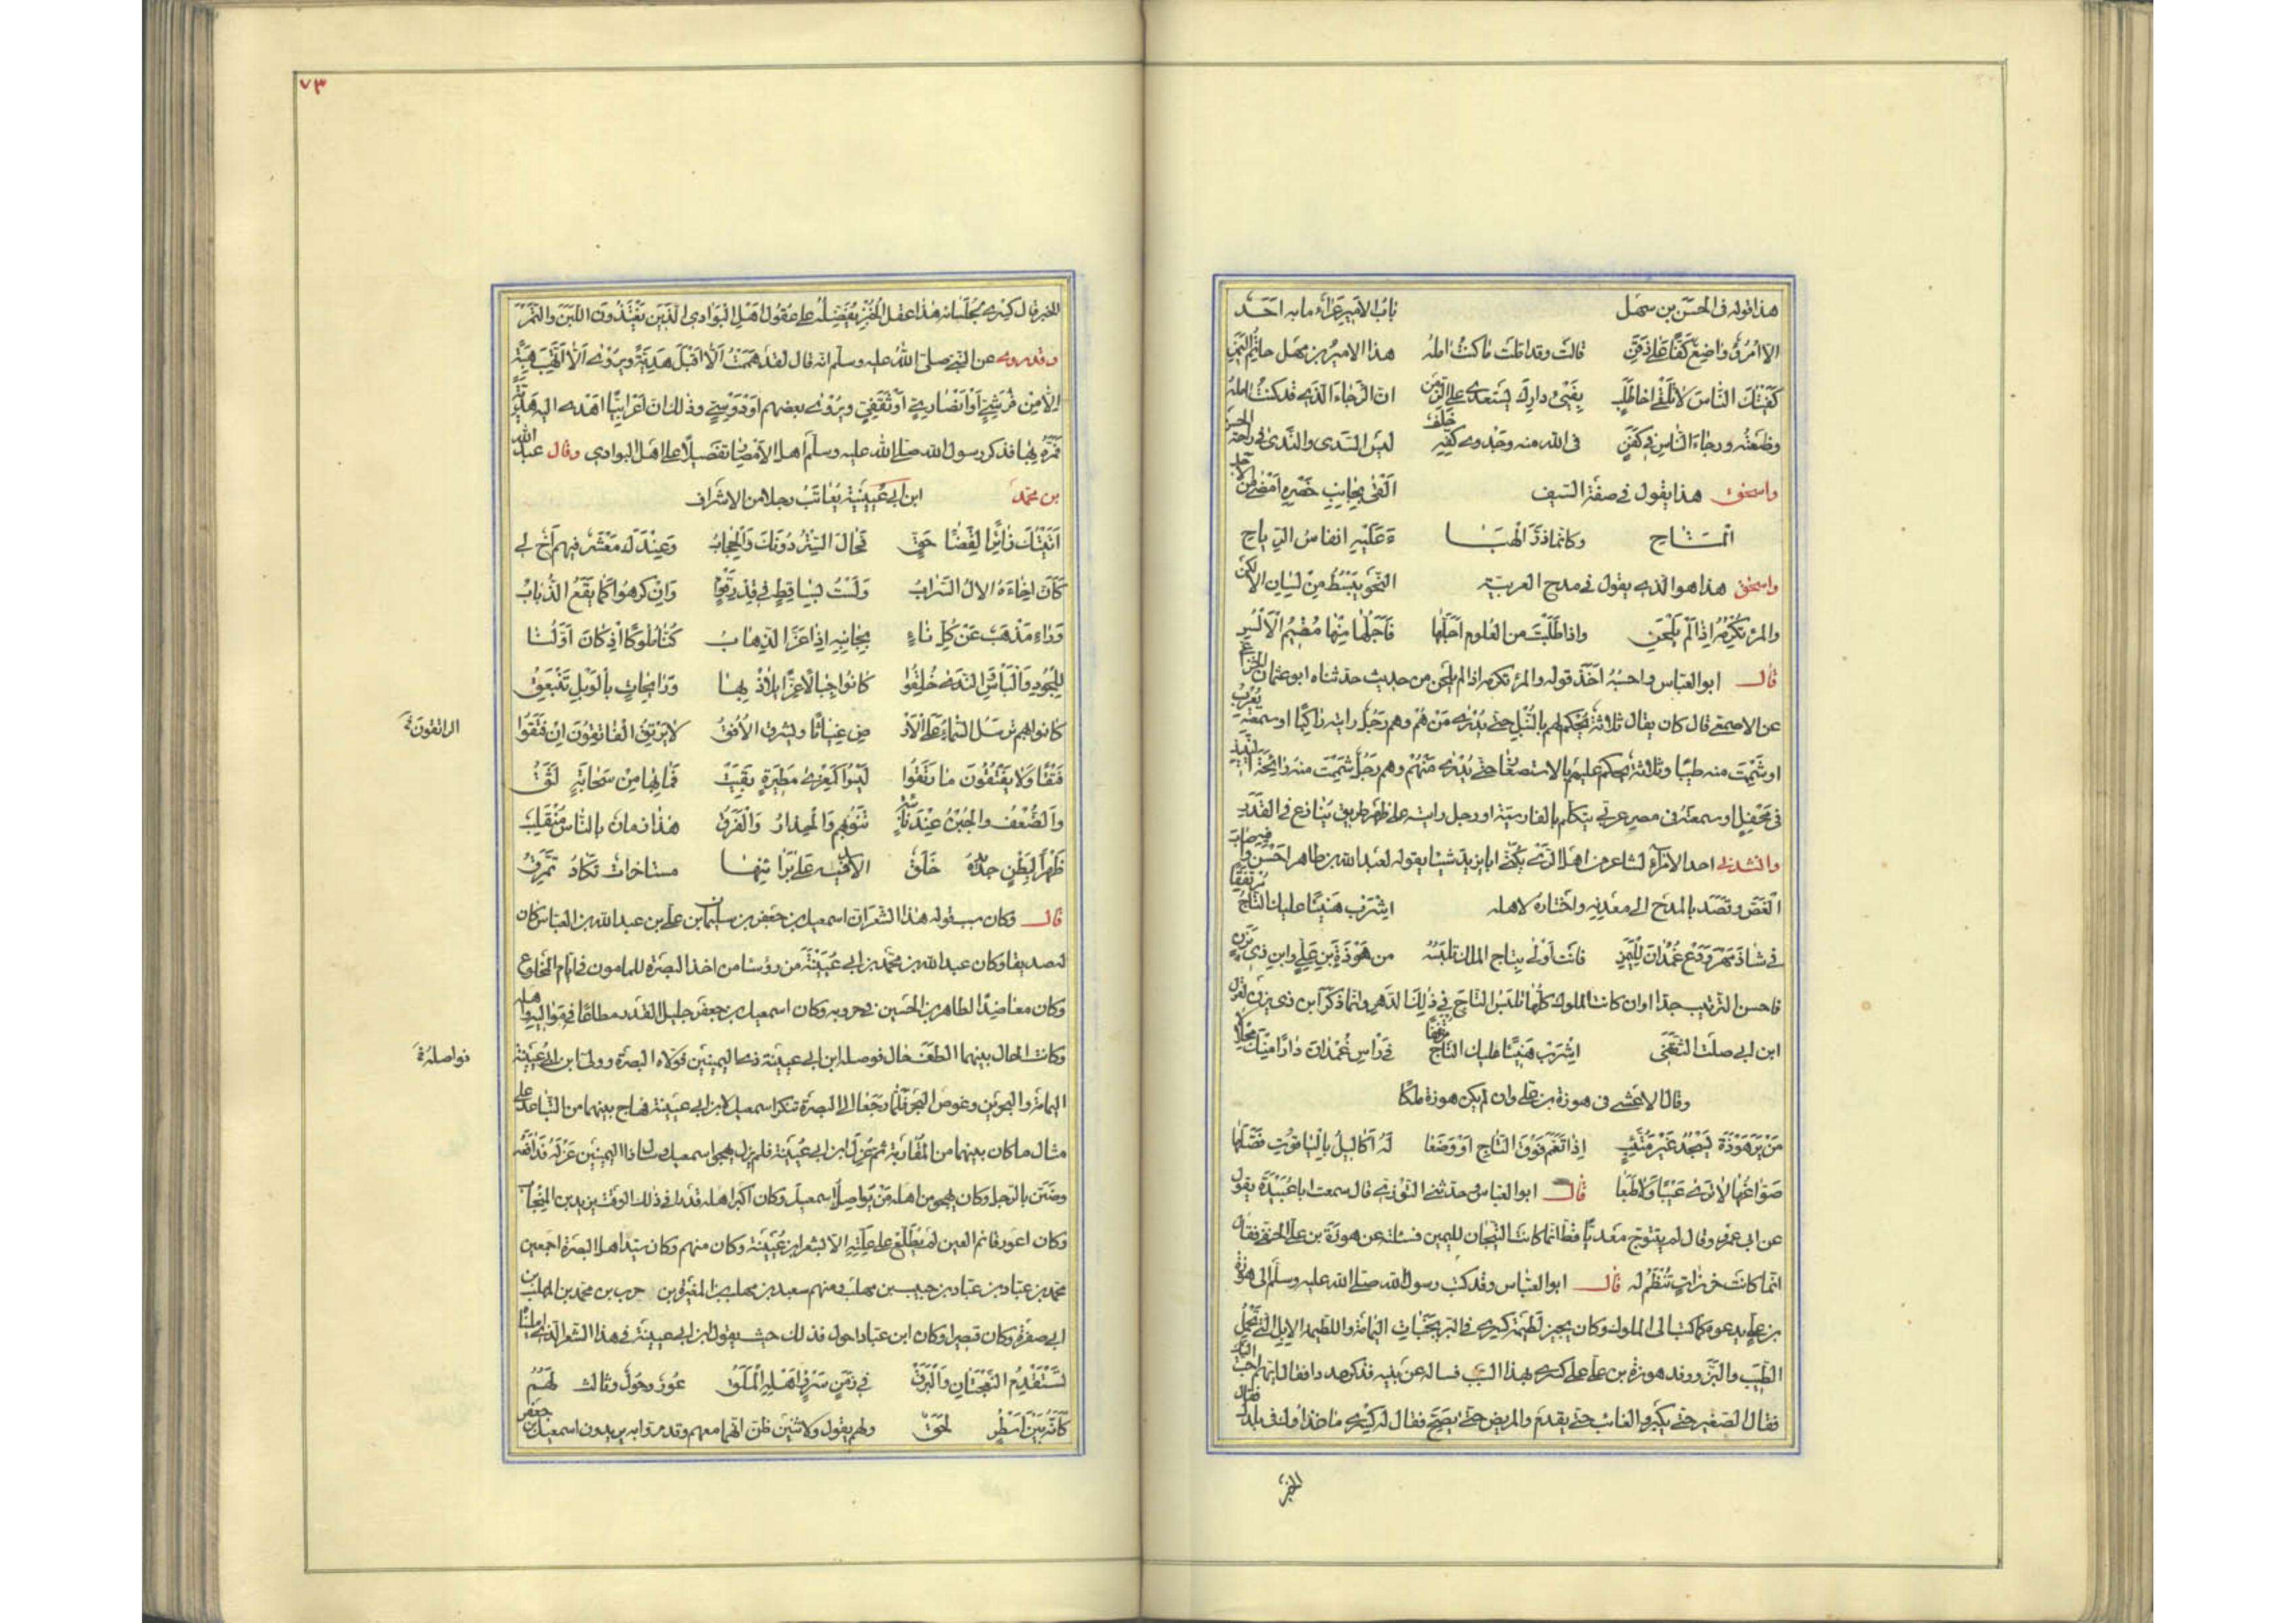 هذا قوله فى الحسن بن سهل باب الامير عراء ما به احد
الا امرؤ واضع كفا على ذقن قالت وقد املت ما كنت امله هذا الامير بن سهل حاتم اليمن
كفيتك الناس لا تلقى اخا طلب بفىء دارك يستعدى على الزمن ان الرجاء الذى قد كنت امله
وضعته ورجاء الناس فى كفن فى الله منه وجدوى كفه خلف ليس السدى والندى فى راحة الحسن
واسحق هذا يقول فى صفة السيف القى بجانب خصره امضى من الاجل
المتاح وكانما ذر الهبا ءة عليه انفاس الرياح
واسحق هذا هو الذى يقول فى مدح العربية النحو يبسط من لسان الالكن
والمرء تكرمه اذا لم يلحن واذا طلبت من العلوم اجلها فاجلها منها مقيم الالسن
قال ابو العباس واحسبه اخذ قوله والمرء تكرمه اذا لم يلحن من حديث حدثناه ابو عثمان الخزاعى
عن الاصمعى قال كان يقال ثلاثة يحكم لهم بالنبل حتى يدرى من هم وهم رجل رايته راكبا او سمعته يعرب
او شممت منه طيبا وثلاثة يحكم عليهم بالاستصغار حتى يدرى من هم وهم رجل شممت منه رائحة نبيذ
فى محفل او سمعته فى مصر عربى يتكلم بالفارسية او رجل رايته على ظهر طريق ينازع فى القدر
وانشدنى احد الامراء لشاعر من اهل الرى يكنى ابا يزيد شيئا يقوله لعبد الله بن طاهر احسن فيه واصاب
الفص وقصد بالمدح الى معدنه واختاره لاهله اشرب هنيئا عليك التاج مرتفقا
فى شاذ مهر ودع غمدان لليمن فانت اولى بتاج الملك تلبسه من هوذة بن على وابن ذى يزن
فاحسن الترتيب جدا وان كانت الملوك كلها تلبس التاج فى ذلك الدهر وانما ذكر ابن ذى يزن لقول
ابن ابى صلت الثقفى اشرب هنيئا عليك التاج مرتفقا فى راس غمدان دارا منك محلالا
وقال الاعشى فى هوذة بن على وان لم يكن هوذة ملكا
من ير هوذة يسجد غير متئب اذا تعمم فوق التاج او وضعا له اكاليل بالياقوت فصلها
صواغها لا ترى عيبا ولا طبعا قال ابو العباس وحدثنى التوزى قال سمعت ابا عبيدة يقول
عن ابى عمرو وقال لم يتتوج معدى قط انما كانت التيجان لليمن فسالته عن هوذة بن على الحنفى فقال
انما كانت خرزات تنظم له قال ابو العباس وقد كتب رسول الله صلى الله عليه وسلم الى هوذة
بن على يدعوه كما كتب الى الملوك وكان يجيز لطيمة كسرى فى البر بجنبات اليمامة واللطيمة الابل التى تحمل
الطيب والبز ووفد هوذة بن على على كسرى بهذا السبب فساله عن بنيه فذكر عددا فقال ايهم احب اليك
فقال الصغير حتى يكبر والغائب حتى يقدم والمريض حتى يصح فقال له كسرى ما غذاؤك فى بلدك فقال
الخبز
٧٣
الخبز قال كسرى لجلسائه هذا عقل الخبز يفضله على عقول اهل البوادى الذين يغتذون اللبن والتمر
وقد روى عن النبى صلى الله عليه وسلم انه قال لقد هممت الا اقبل هدية ويروى الا اتهب هبة
الا من قرشى او انصارى او ثقفى ويروى بعضهم او دوسى وذلك ان اعرابيا اهدى اليه هدية
فمن بها فذكر رسول الله صلى الله عليه وسلم اهل الامصار تفضيلا على اهل البوادى وقال عبد الله
بن محمد ابن ابى عيينة يعاتب رجلا من الاشراف
اتيتك زائرا لقضاء حق فحال الستر دونك والحجاب وعندك معشر فيهم اخ لى
كان اخاءه الال السراب ولست بساقط فى قدر قوم وان كرهوا كما يقع الذباب
وراء مذهب عن كل ناء بجانبه اذا عز الذهاب كنا ملوكا اذ كان اولنا
للجود والباس الندى خلقوا كانوا جبالا عزا يلاذ بها ورائحات بالوبل تنبعق
كانوا بهم ترسل السماء على الار ض غياثا ويشرق الافق لا يرتق الفاتقون ان فتقوا
الراتقون
فتقا ولا يفتقون ما رتقوا ليسوا كمعزى مطيرة بقيت فما بها من سحابة لثق
والضعف والجبن عند نائبة تنوبهم والحذار والفرق هذا زمان بالناس منقلب
ظهرا لبطن جديده خلق الاسد فيه على براثنها مستاخرات تكاد تمزق
قال وكان سبب قوله هذا الشعر ان اسمعيل بن جعفر بن سليمان بن على بن عبد الله بن العباس كان
له صديقا وكان عبد الله بن محمد بن ابى عيينة من رؤسا من اخذ البصرة للمامون فى ايام المخلوع
وكان معاضدا لطاهر بن الحسين فى حروبه وكان اسمعيل بن جعفر جليل القدر مطاعا فى مواليه واهله
وكانت الحال بينهما الطف حال فوصله ابن ابى عيينة بذى اليمينين فولاه البصرة وولى ابن ابى عيينة
فواصله
اليمامة والبحرين وغوص البحر فلما رجعا الى البصرة تنكر اسمعيل لابن ابى عيينة فهاج بينهما من التباعد على
مثال ما كان بينهما من المقاربة ثم عزل ابن ابى عيينة فلم يزل يهجوا اسمعيل وسال ذا اليمينين عزله فدافعه
وضن بالرجل وكان يهجو من اهله من يواصل اسمعيل وكان اكبر اهله قدرا فى ذلك الوقت يزيد بن المنجاب
وكان اعور قائم العين لم يطلع على علته الا بشعر ابن عيينة وكان منهم وكان سيد اهل البصرة اجمعين
محمد بن عباد بن عباد بن حبيب بن مهلب ومنهم سعيد بن مهلب بن المغيرة بن حرب بن محمد بن المهلب بن
ابى صفرة وكان قصيرا وكان ابن عباد احول فذلك حيث يقول ابن ابى عيينة فى هذا الشعر الذى املينا
تستقدم النعجتان والبرق فى زمن سرو اهله الملق عور وحول وثالث لهم
كانه بين اسطر لحق ولهم يقول ولاثنين ظن انهما معهم وقد مروا به يريدون اسمعيل بن جعفر